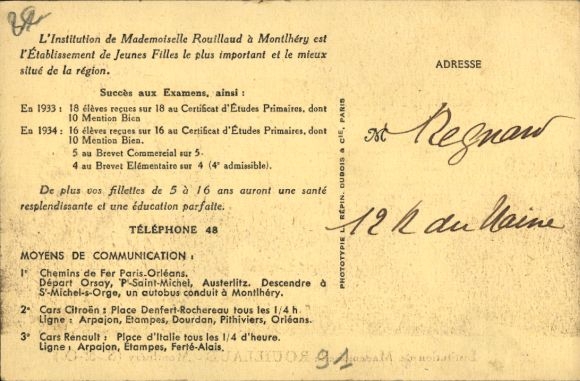 L'Institution de Mademoiselle Rouillaud à Montlhéry est
l'Établissement de Jeunes Filles le plus important et le mieux
situé de la région.
Succès aux Examens, ainsi :
En 1933 : 18 élèves reçues sur 18 au Certificat d'Études Primaires, dont
10 Mention Bien
En 1934 : 16 élèves reçues sur 16 au Certificat d'Études Primaires, dont
10 Mention Bien.
5 au Brevet Commercial sur 5.
4 au Brevet Elémentaire sur 4 (4e admissible).
De plus vos fillettes de 5 à 16 ans auront une santé
resplendissante et une éducation parfaite.
TÉLÉPHONE 48
MOYENS DE COMMUNICATION :
1° Chemins de Fer Paris-Orléans.
Départ Orsay, Pt-Saint-Michel, Austerlitz. Descendre à
St-Michel-s-Orge, un autobus conduit à Montlhéry.
2° Cars Citroën : Place Denfert-Rochereau tous les 1/4 h.
Ligne : Arpajon, Etampes, Dourdan, Pithiviers, Orléans.
3° Cars Renault : Place d'Italie tous les 1/4 d'heure.
Ligne : Arpajon, Étampes, Ferté-Alais.
91
PHOTOTYPIE L. RÉPIN, DUBOIS & Cie, PARIS
ADRESSE
M Regnard
12 R du Maine